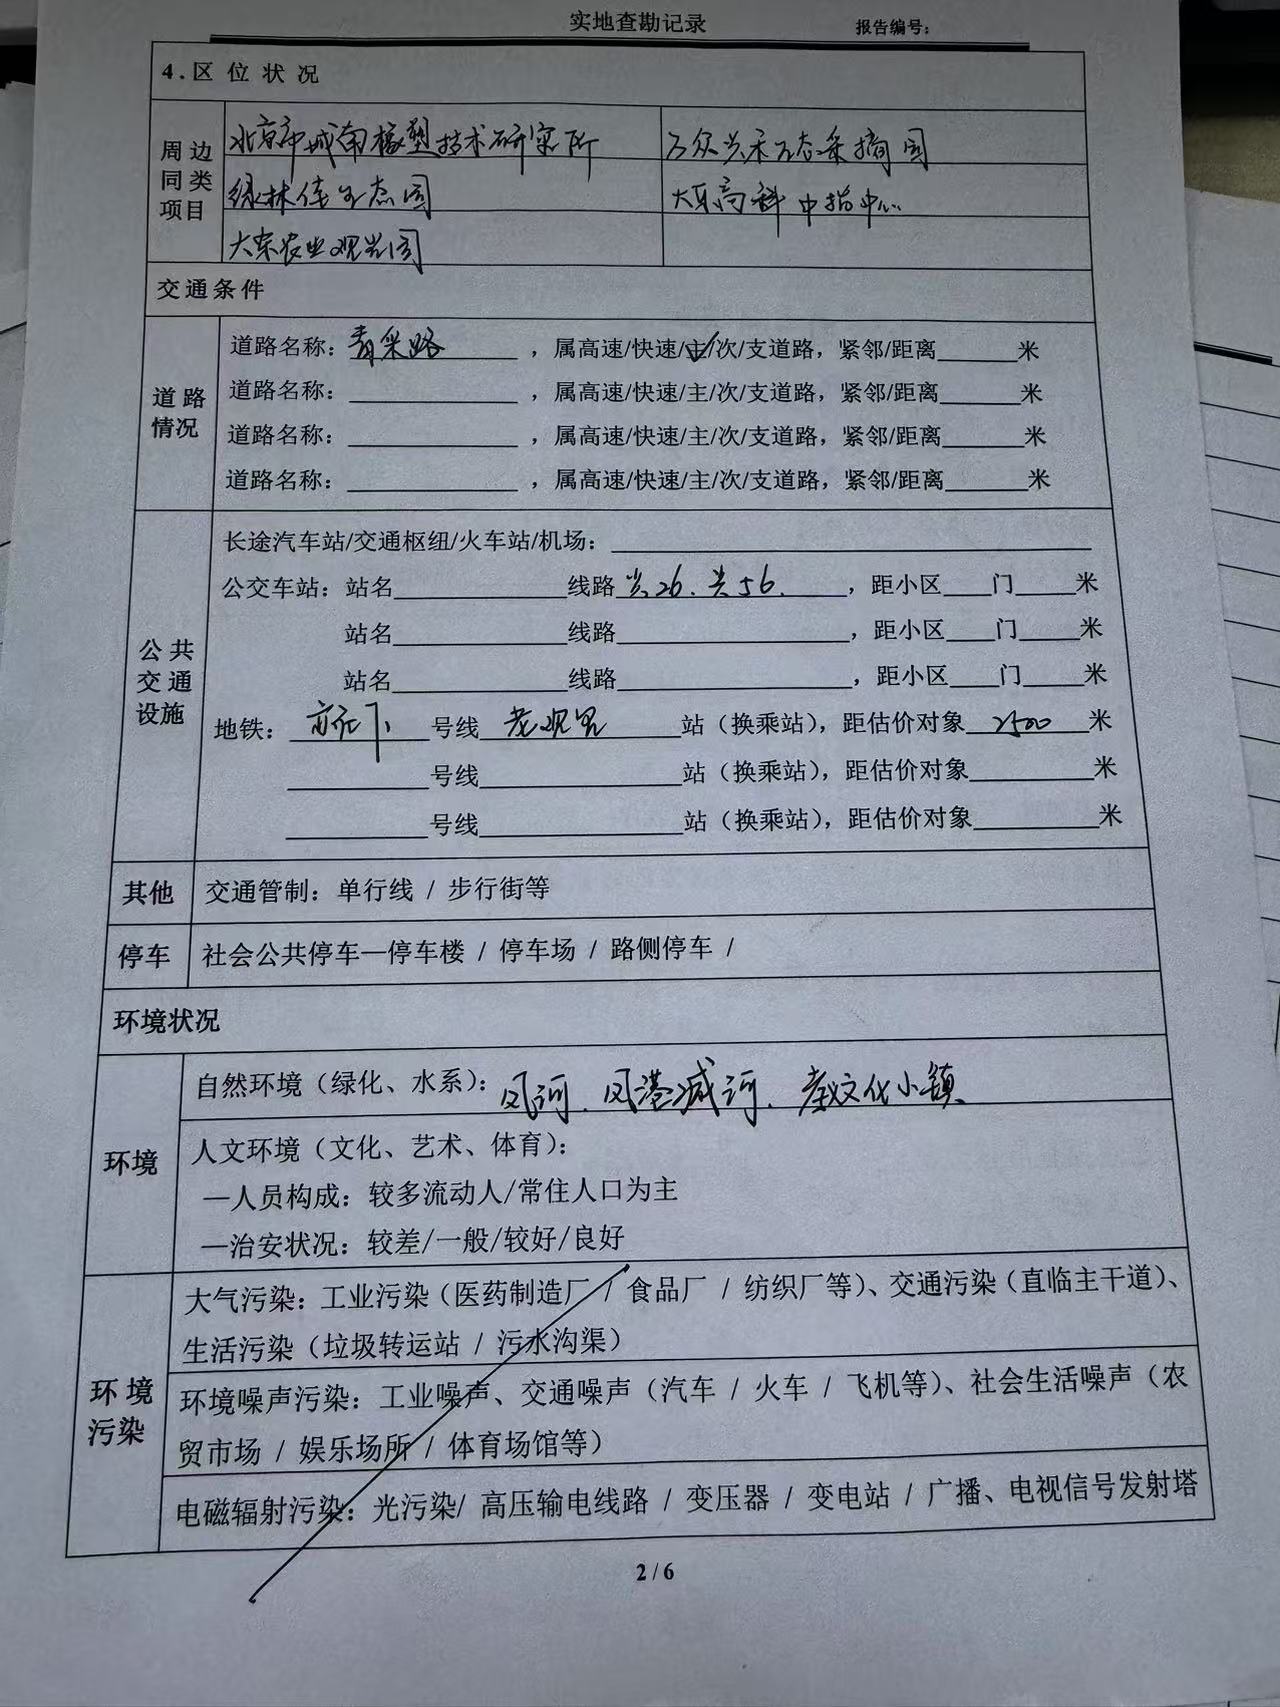 实地查勘记录 报告编号：
4.区位状况
周边同类项目
北京市城南橡塑技术研究所 万众兴禾生态采摘园
绿林佳生态园 大东高科中指中心
大东农业观光园
交通条件
道路情况
道路名称：青采路，属高速/快速/主/次/支道路，紧邻/距离______米
道路名称：__________，属高速/快速/主/次/支道路，紧邻/距离______米
道路名称：__________，属高速/快速/主/次/支道路，紧邻/距离______米
道路名称：__________，属高速/快速/主/次/支道路，紧邻/距离______米
公共交通设施
长途汽车站/交通枢纽/火车站/机场：__________
公交车站：站名__________线路 兴26、兴56，距小区____门____米
站名__________线路__________，距小区____门____米
站名__________线路__________，距小区____门____米
地铁：号线 老观里 站（换乘站），距估价对象 2500 米
__________号线__________站（换乘站），距估价对象__________米
__________号线__________站（换乘站），距估价对象__________米
其他 交通管制：单行线 / 步行街等
停车 社会公共停车—停车楼 / 停车场 / 路侧停车 /
环境状况
环境
自然环境（绿化、水系）：凤河、凤港减河、孝文化小镇
人文环境（文化、艺术、体育）：
—人员构成：较多流动人/常住人口为主
—治安状况：较差/一般/较好/良好
环境污染
大气污染：工业污染（医药制造厂 / 食品厂 / 纺织厂等）、交通污染（直临主干道）、
生活污染（垃圾转运站 / 污水沟渠）
环境噪声污染：工业噪声、交通噪声（汽车 / 火车 / 飞机等）、社会生活噪声（农
贸市场 / 娱乐场所 / 体育场馆等）
电磁辐射污染：光污染/ 高压输电线路 / 变压器 / 变电站 / 广播、电视信号发射塔
2 / 6